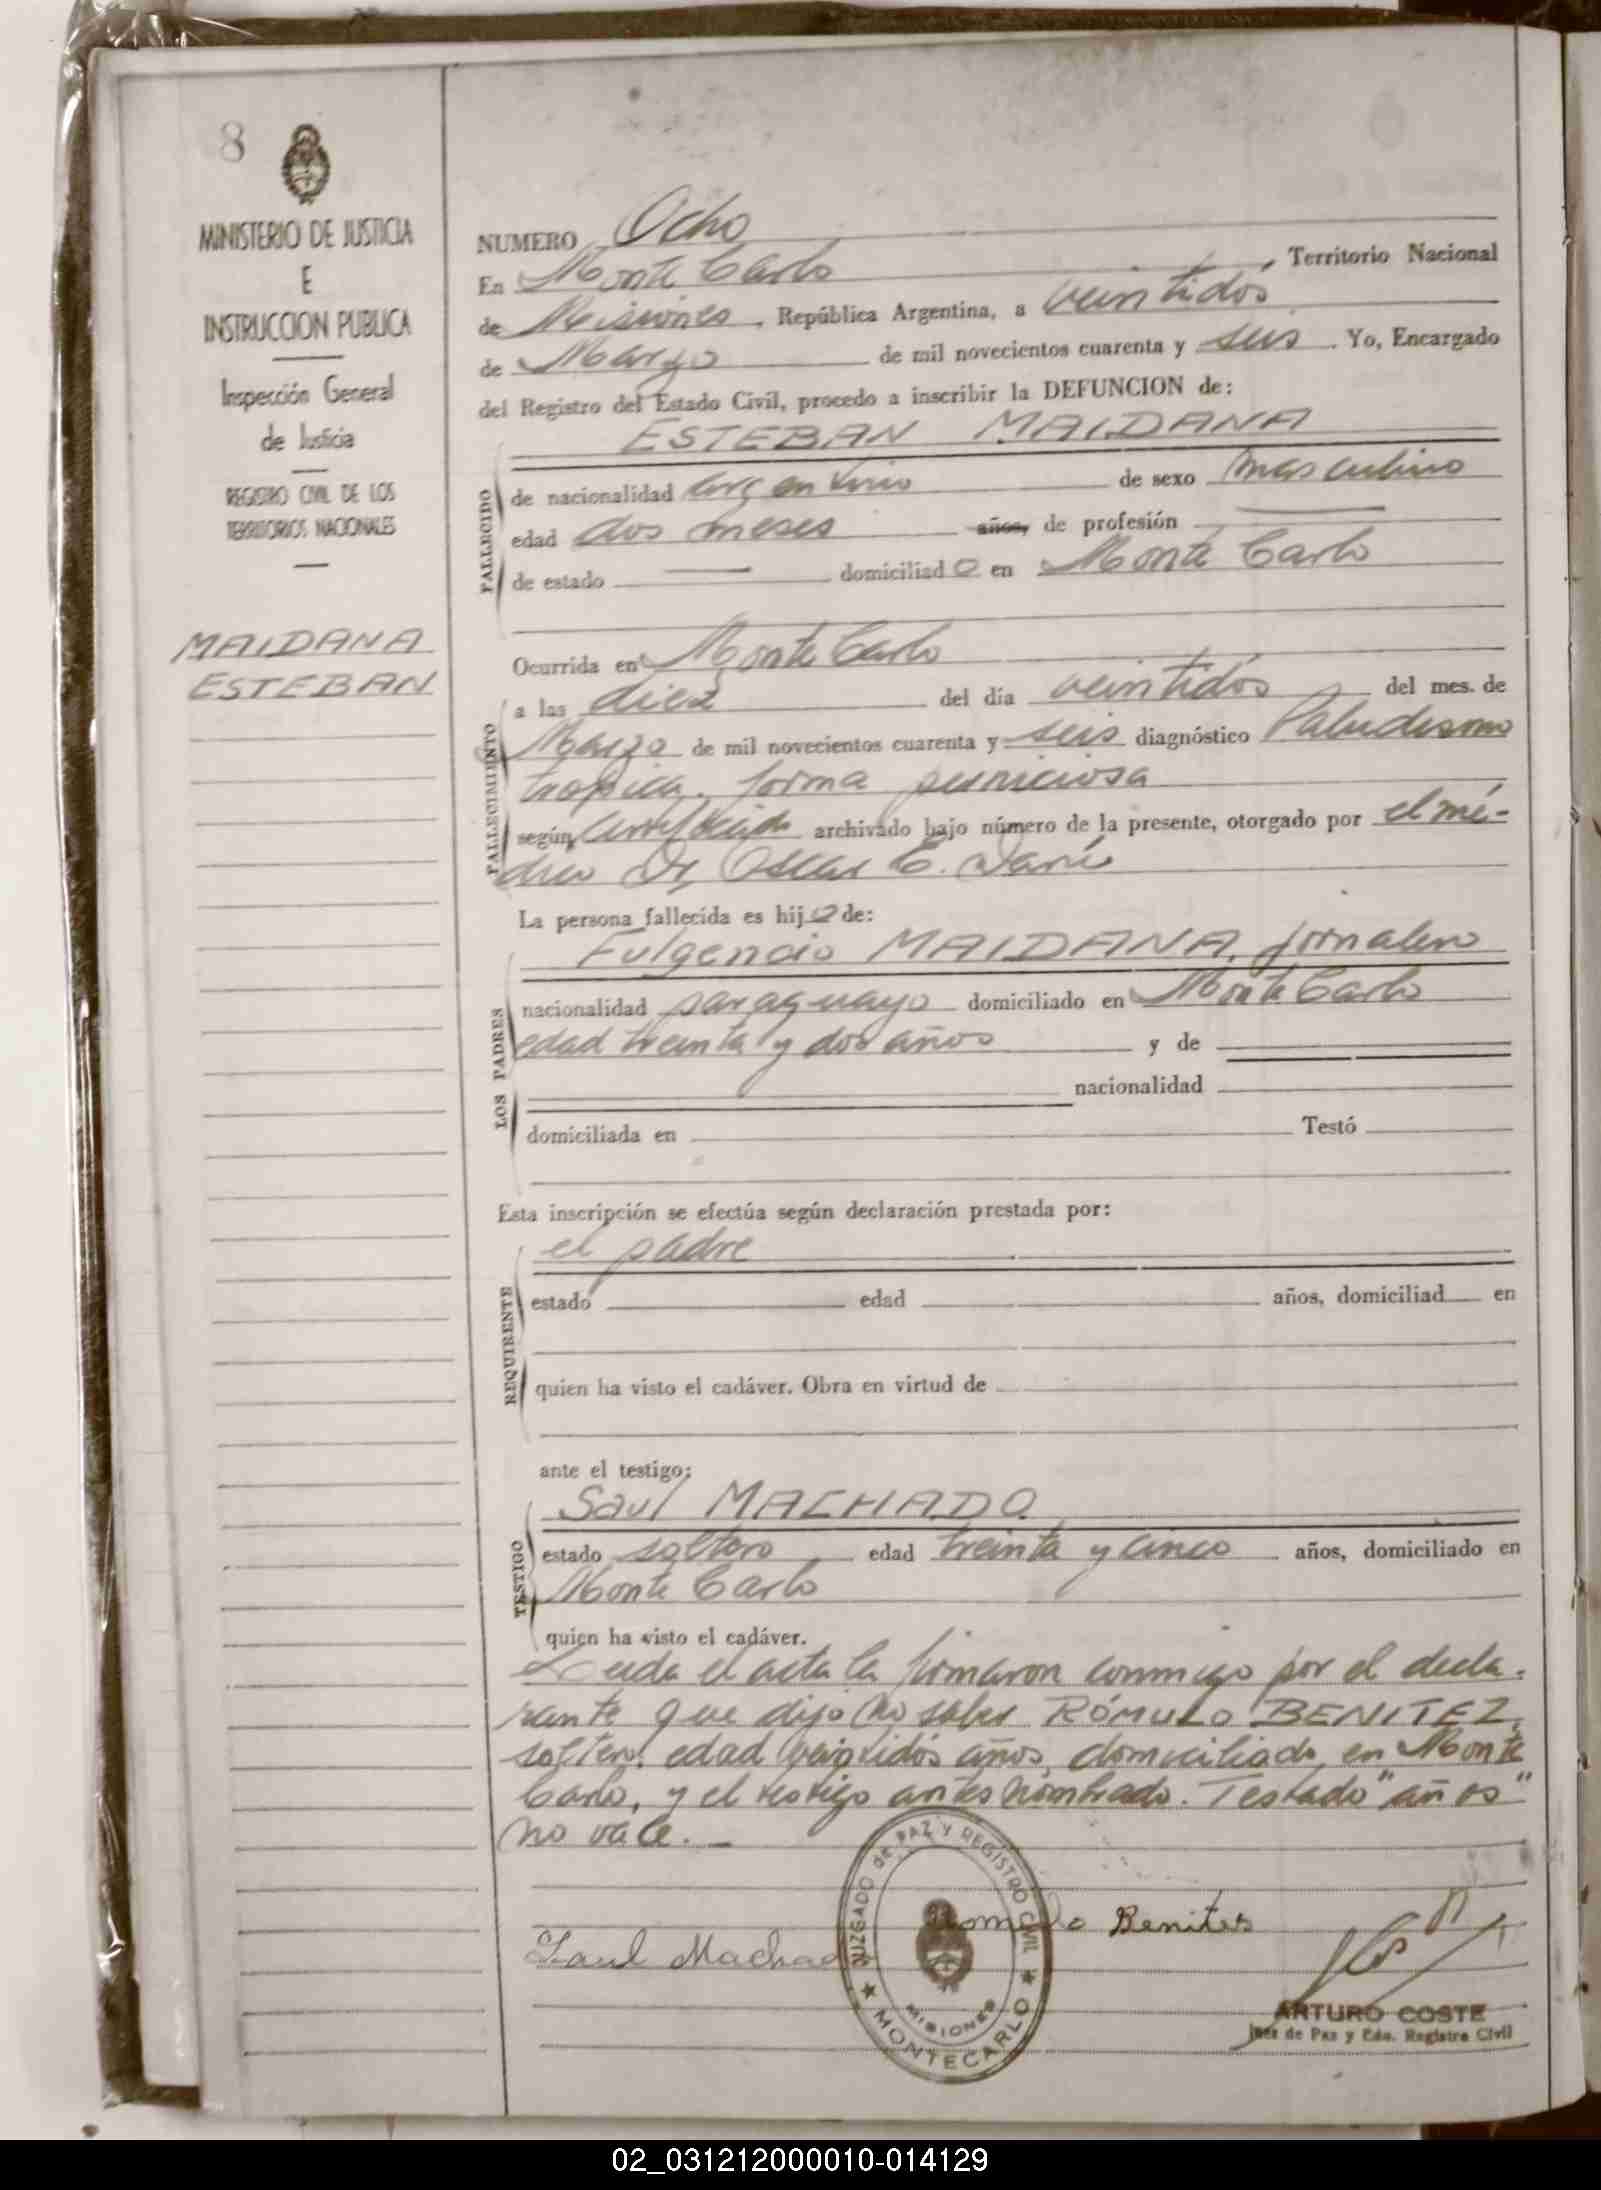 8
MINISTERIO DE JUSTICIA
E
INSTRUCCION PUBLICA
Inspección General
de Justicia
REGISTRO CIVIL DE LOS
TERRITORIOS NACIONALES
MAIDANA
ESTEBAN
NUMERO Ocho
En Monte Carlo, Territorio Nacional
de Misiones, República Argentina, a veintidós
de Marzo de mil novecientos cuarenta y seis. Yo, Encargado
del Registro del Estado Civil, procedo a inscribir la DEFUNCION de:
ESTEBAN MAIDANA
FALLECIDO
de nacionalidad argentino de sexo masculino
edad dos meses años, de profesión
de estado domiciliado en Monte Carlo
Ocurrida en Monte Carlo
FALLECIMIENTO
a las diez del día veintidós del mes de
Marzo de mil novecientos cuarenta y seis diagnóstico Paludismo
tropica. forma perniciosa
según certificado archivado bajo número de la presente, otorgado por el mé-
dico Dr. Oscar C. Darú
La persona fallecida es hijo de:
LOS PADRES
Fulgencio MAIDANA, jornalero
nacionalidad paraguayo domiciliado en Monte Carlo
edad treinta y dos años y de
nacionalidad
domiciliada en Testó
Esta inscripción se efectúa según declaración prestada por:
REQUIRENTE
el padre
estado edad años, domiciliad en
quien ha visto el cadáver. Obra en virtud de
ante el testigo:
TESTIGO
Saul MACHADO
estado soltero edad treinta y cinco años, domiciliado en
Monte Carlo
quien ha visto el cadáver.
Leida el acta la firmaron conmigo por el decla-
rante que dijo no saber RÓMULO BENITEZ,
soltero, edad veintidós años, domiciliado en Monte
Carlo, y el testigo antes nombrado. Testado "años"
no vale.
JUZGADO de PAZ Y REGISTRO CIVIL
MISIONES
★ MONTECARLO ★
Romulo Benites
Saul Machado
ARTURO COSTE
Juez de Paz y Edo. Registro Civil
02_031212000010-014129